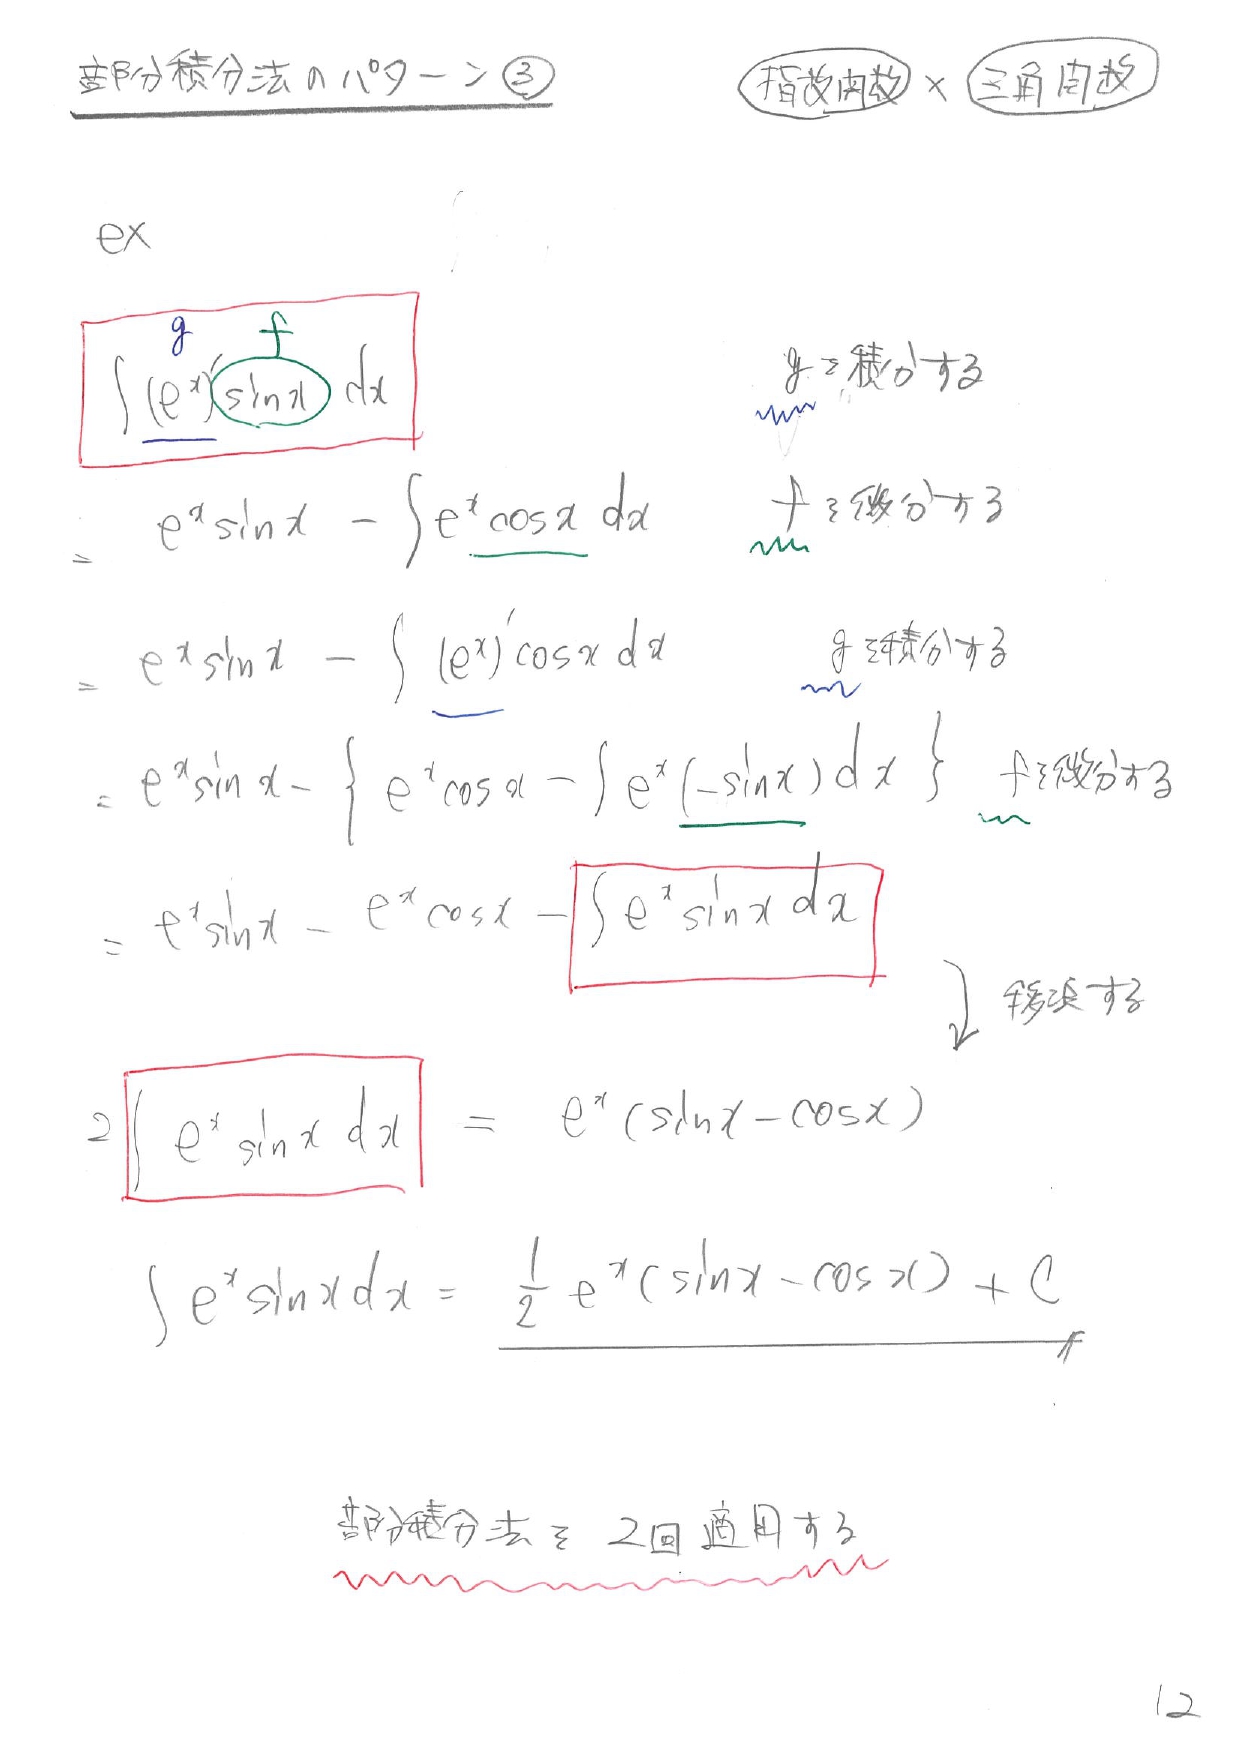 部分積分法のパターン③ 指数関数 × 三角関数
ex
g f
∫(e^x)' sinx dx gを積分する
= e^x sinx - ∫e^x cosx dx fを微分する
= e^x sinx - ∫(e^x)' cosx dx gを積分する
= e^x sinx - { e^x cosx - ∫e^x (-sinx) dx } fを微分する
= e^x sinx - e^x cosx - ∫e^x sinx dx
移項する
2∫e^x sinx dx = e^x (sinx - cosx)
∫e^x sinx dx = 1/2 e^x (sinx - cosx) + C
部分積分法を2回適用する
12